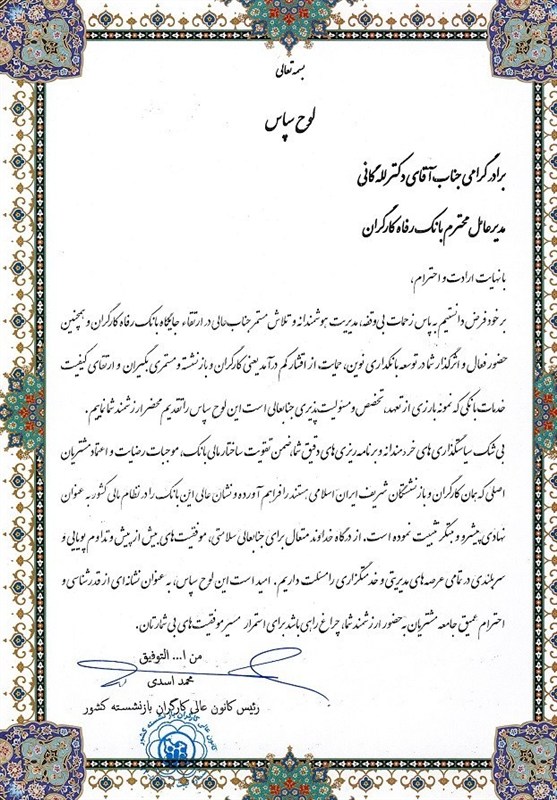 بسمه تعالی
لوح سپاس
برادر گرامی جناب آقای دکتر لله گانی
مدیر عامل محترم بانک رفاه کارگران
با نهایت ارادت و احترام،
بر خود فرض دانستیم به پاس زحمات بی وقفه، مدیریت هوشمندانه و تلاش مستمر جناب عالی در ارتقاء جایگاه بانک رفاه کارگران و همچنین
حضور فعال و اثرگذار شما در توسعه بانکداری نوین، حمایت از اقشار کم درآمد یعنی کارگران و بازنشسته و مستمری بگیران و ارتقای کیفیت
خدمات بانکی که نمونه بارزی از تعهد، تخصص و مسئولیت پذیری جنابعالی است این لوح سپاس را تقدیم محضر ارزشمند شما نماییم.
بی شک سیاستگذاری های خردمندانه و برنامه ریزی های دقیق شما، ضمن تقویت ساختار مالی بانک، موجبات رضایت و اعتماد مشتریان
اصلی که همان کارگران و بازنشستگان شریف ایران اسلامی هستند را فراهم آورده و نشان عالی این بانک را در نظام مالی کشور به عنوان
نهادی پیشرو و مبتکر تثبیت نموده است. از درگاه خداوند متعال برای جنابعالی سلامتی، موفقیت های بیش از پیش و تداوم پویایی و
سربلندی در تمامی عرصه های مدیریتی و خدمتگزاری را مسئلت داریم. امید است این لوح سپاس، به عنوان نشانه ای از قدرشناسی و
احترام عمیق جامعه مشتریان به حضور ارزشمند شما، چراغ راهی باشد برای استمرار مسیر موفقیت های بی شمارتان.
من ا... التوفیق
محمد اسدی
رئیس کانون عالی کارگران بازنشسته کشور
کانون عالی کارگران بازنشسته کشور